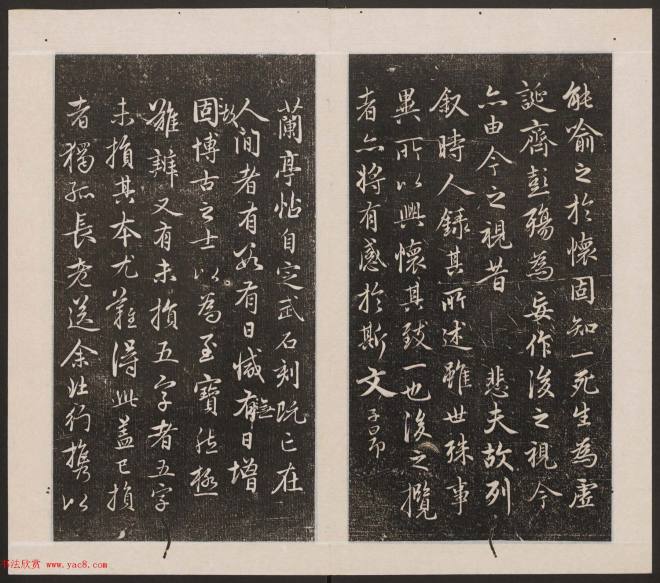 能喻之於懷固知一死生為虛
誕齊彭殤為妄作後之視今
亦由今之視昔 悲夫故列
叙時人錄其所述雖世殊事
異所以興懷其致一也後之攬
者亦將有感於斯文 子昂
蘭亭帖自定武石刻既亡在
人間者有數有日減有無日增
固故博古之士以為至寶然極
難辨又有未損五字者五字
未損其本尤難得此蓋已損
者獨孤長老送余北行攜以
书法欣赏 www.yac8.com